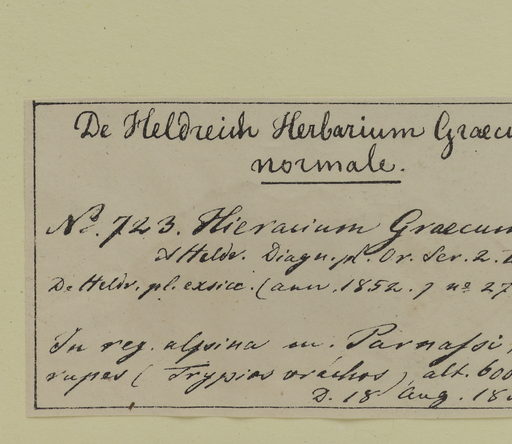 De Heldreich Herbarium Graecu
normale.
No. 723. Hieracium Graecum
& Heldr. Diagn. pl. Or. Ser. 2.
De Heldr. pl. exsicc. (ann. 1852.) no 27
In reg. alpina m. Parnassi
rupes (Trypios vráchos), alt. 600
D. 18 Aug. 18